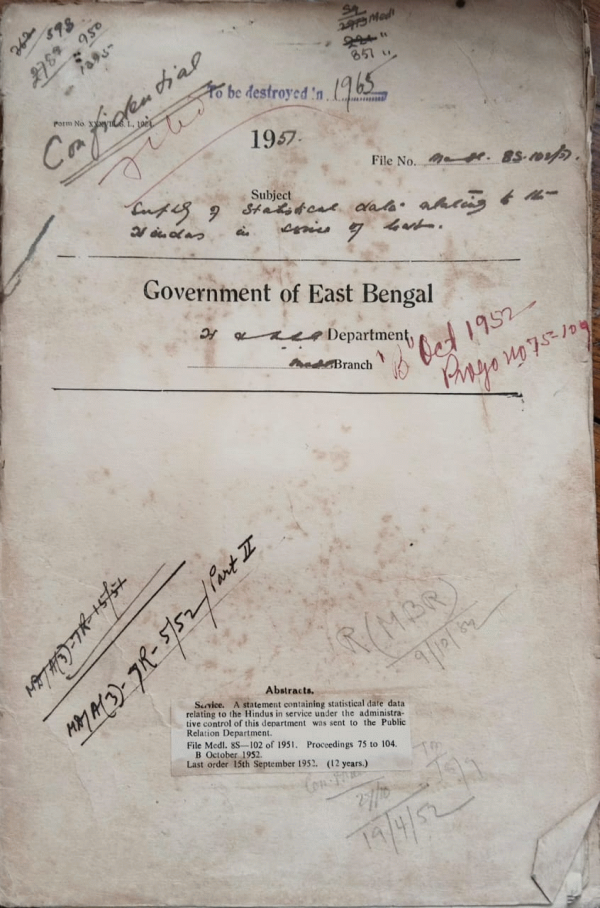 598
950
2789
1395
351 "
Confidential
To be destroyed in 1965
Form No.
1951.
File No. Medl. 8S-102/51.
Subject
Supply of Statistical data relating to the
Hindus in service of Govt.
Government of East Bengal
Department
Medl Branch
"B" Oct 1952
Progs no 75-104
MA/A(3)-7R-15/51
MA/A(3)-7R-5/52/Part II
R(M.B.R)
9/10/52
Abstracts.
Service. A statement containing statistical date data
relating to the Hindus in service under the administra-
tive control of this department was sent to the Public
Relation Department.
File Medl. 8S—102 of 1951. Proceedings 75 to 104.
B October 1952.
Last order 15th September 1952. (12 years.)
19/4/52